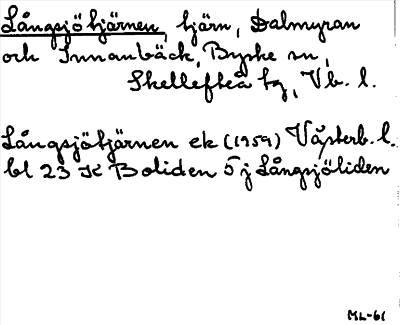 Långsjötjärnen, tjärn, Dalmyran
och Innanbäck, Byske sn,
Skellefteå tg, Vb. l.
Långsjötjärnen ek (1959) Västerb. l.
bl 23 K Boliden 5 j Långsjöliden
ML-61